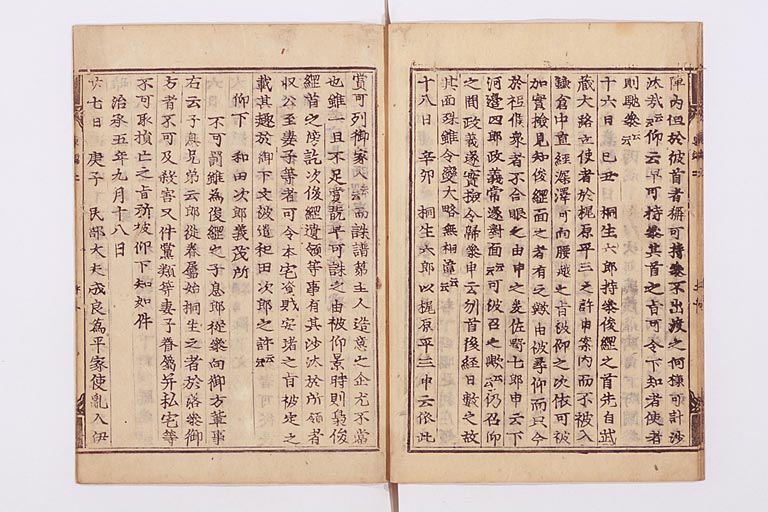 陣内但於彼首者猶可持參不出渡之何様可計沙
汰哉云々仰云早可持參其首之旨可令下知者使者
則馳參云々
十六日己丑　桐生六郎持參俊綱之首先自武
藏大路立使者於梶原平三之許申案内而不被入
鎌倉中直經深澤可向腰越之旨被仰之次依可被
加實檢見知俊綱面之者有之歟由被尋仰而只今
於祗候衆者不合眼之由申之爰佐野七郎申云下
河邊四郎政義常遂對面云々可被召之歟云々仍召仰
之間政義遂實檢令歸參申云刎首後經日數之故
其面殊雖令變大略無相違云々
十八日　辛卯　桐生六郎以梶原平三申云依此
賞可列御家人云々而誅譜第主人造意之企尤不當
也雖一旦不足賞翫早可誅之由被仰景時則梟俊
綱首之傍訖次俊綱遺領等事有其沙汰於所領者
収公至妻子等者可令本宅資財安堵之旨被定之
載其趣於御下文被遣和田次郎之許云々
仰下　和田次郎義茂所
不可罰雖為俊綱之子息郎從參向御方輩事
右云子息兄弟云郎從眷屬始桐生之者於落參御
方者不可及殺害又件黨類等妻子眷屬并私宅等
不可取損亡之旨所被仰下知如件
治承五年九月十八日
廿七日　庚子　民部大夫成良為平家使亂入伊